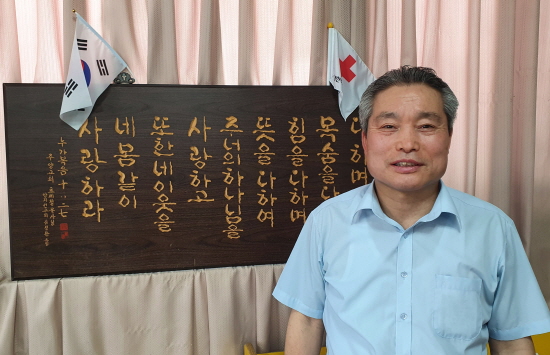 하며
목숨을
힘을 다하며
뜻을 다하여
주 너의 하나님을
사랑하고
또한 네 이웃을
네 몸같이
사랑하라
누가복음 十:二七